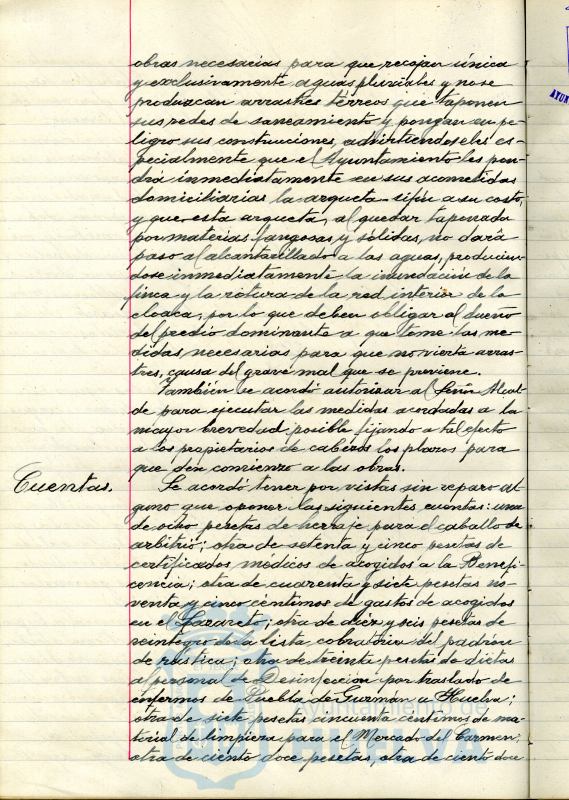 obras necesarias para que recojan única
y exclusivamente aguas pluviales y no se
produzcan arrastres térreos que taponen
sus redes de saneamiento y pongan en pe-
ligro sus construcciones, advirtiendoseles es-
pecialmente que el Ayuntamiento les pon-
drá inmediatamente en sus acometidas
domiciliarias la arqueta-sifón a su costo,
y que esta arqueta, al quedar taponada
por materias fangosas y sólidas, no dará
paso al alcantarillado a las aguas, producien-
dose inmediatamente la inundación de la
finca y la rotura de la red interior de la
cloaca, por lo que deben obligar al dueño
del predio dominante a que tome las me-
didas necesarias para que no vierta arras-
tres, causa del grave mal que se previene.
También se acordó autorizar al Señor Alcal-
de para ejecutar las medidas acordadas a la
mayor brevedad posible fijando a tal efecto
a los propietarios de cabezos los plazos para
que den comienzo a las obras.
Cuentas.
Se acordó tener por vistas sin reparo al-
guno que oponer las siguientes cuentas: una
de ocho pesetas de herraje para el caballo de
arbitrio; otra de setenta y cinco pesetas de
certificados médicos de acogidos a la Benefi-
cencia; otra de cuarenta y siete pesetas no-
venta y cinco céntimos de gastos de acogidos
en el Lazareto; otra de diez y seis pesetas de
reintegro de la lista cobratoria del padrón
de rústica; otra de treinta pesetas de dietas
al personal de Desinfección por traslado de
enfermos de Puebla de Guzmán a Huelva;
otra de siete pesetas cincuenta céntimos de ma-
terial de limpieza para el Mercado del Carmen;
otra de ciento doce pesetas, otra de ciento doce
Ayuntamiento de
HUELVA